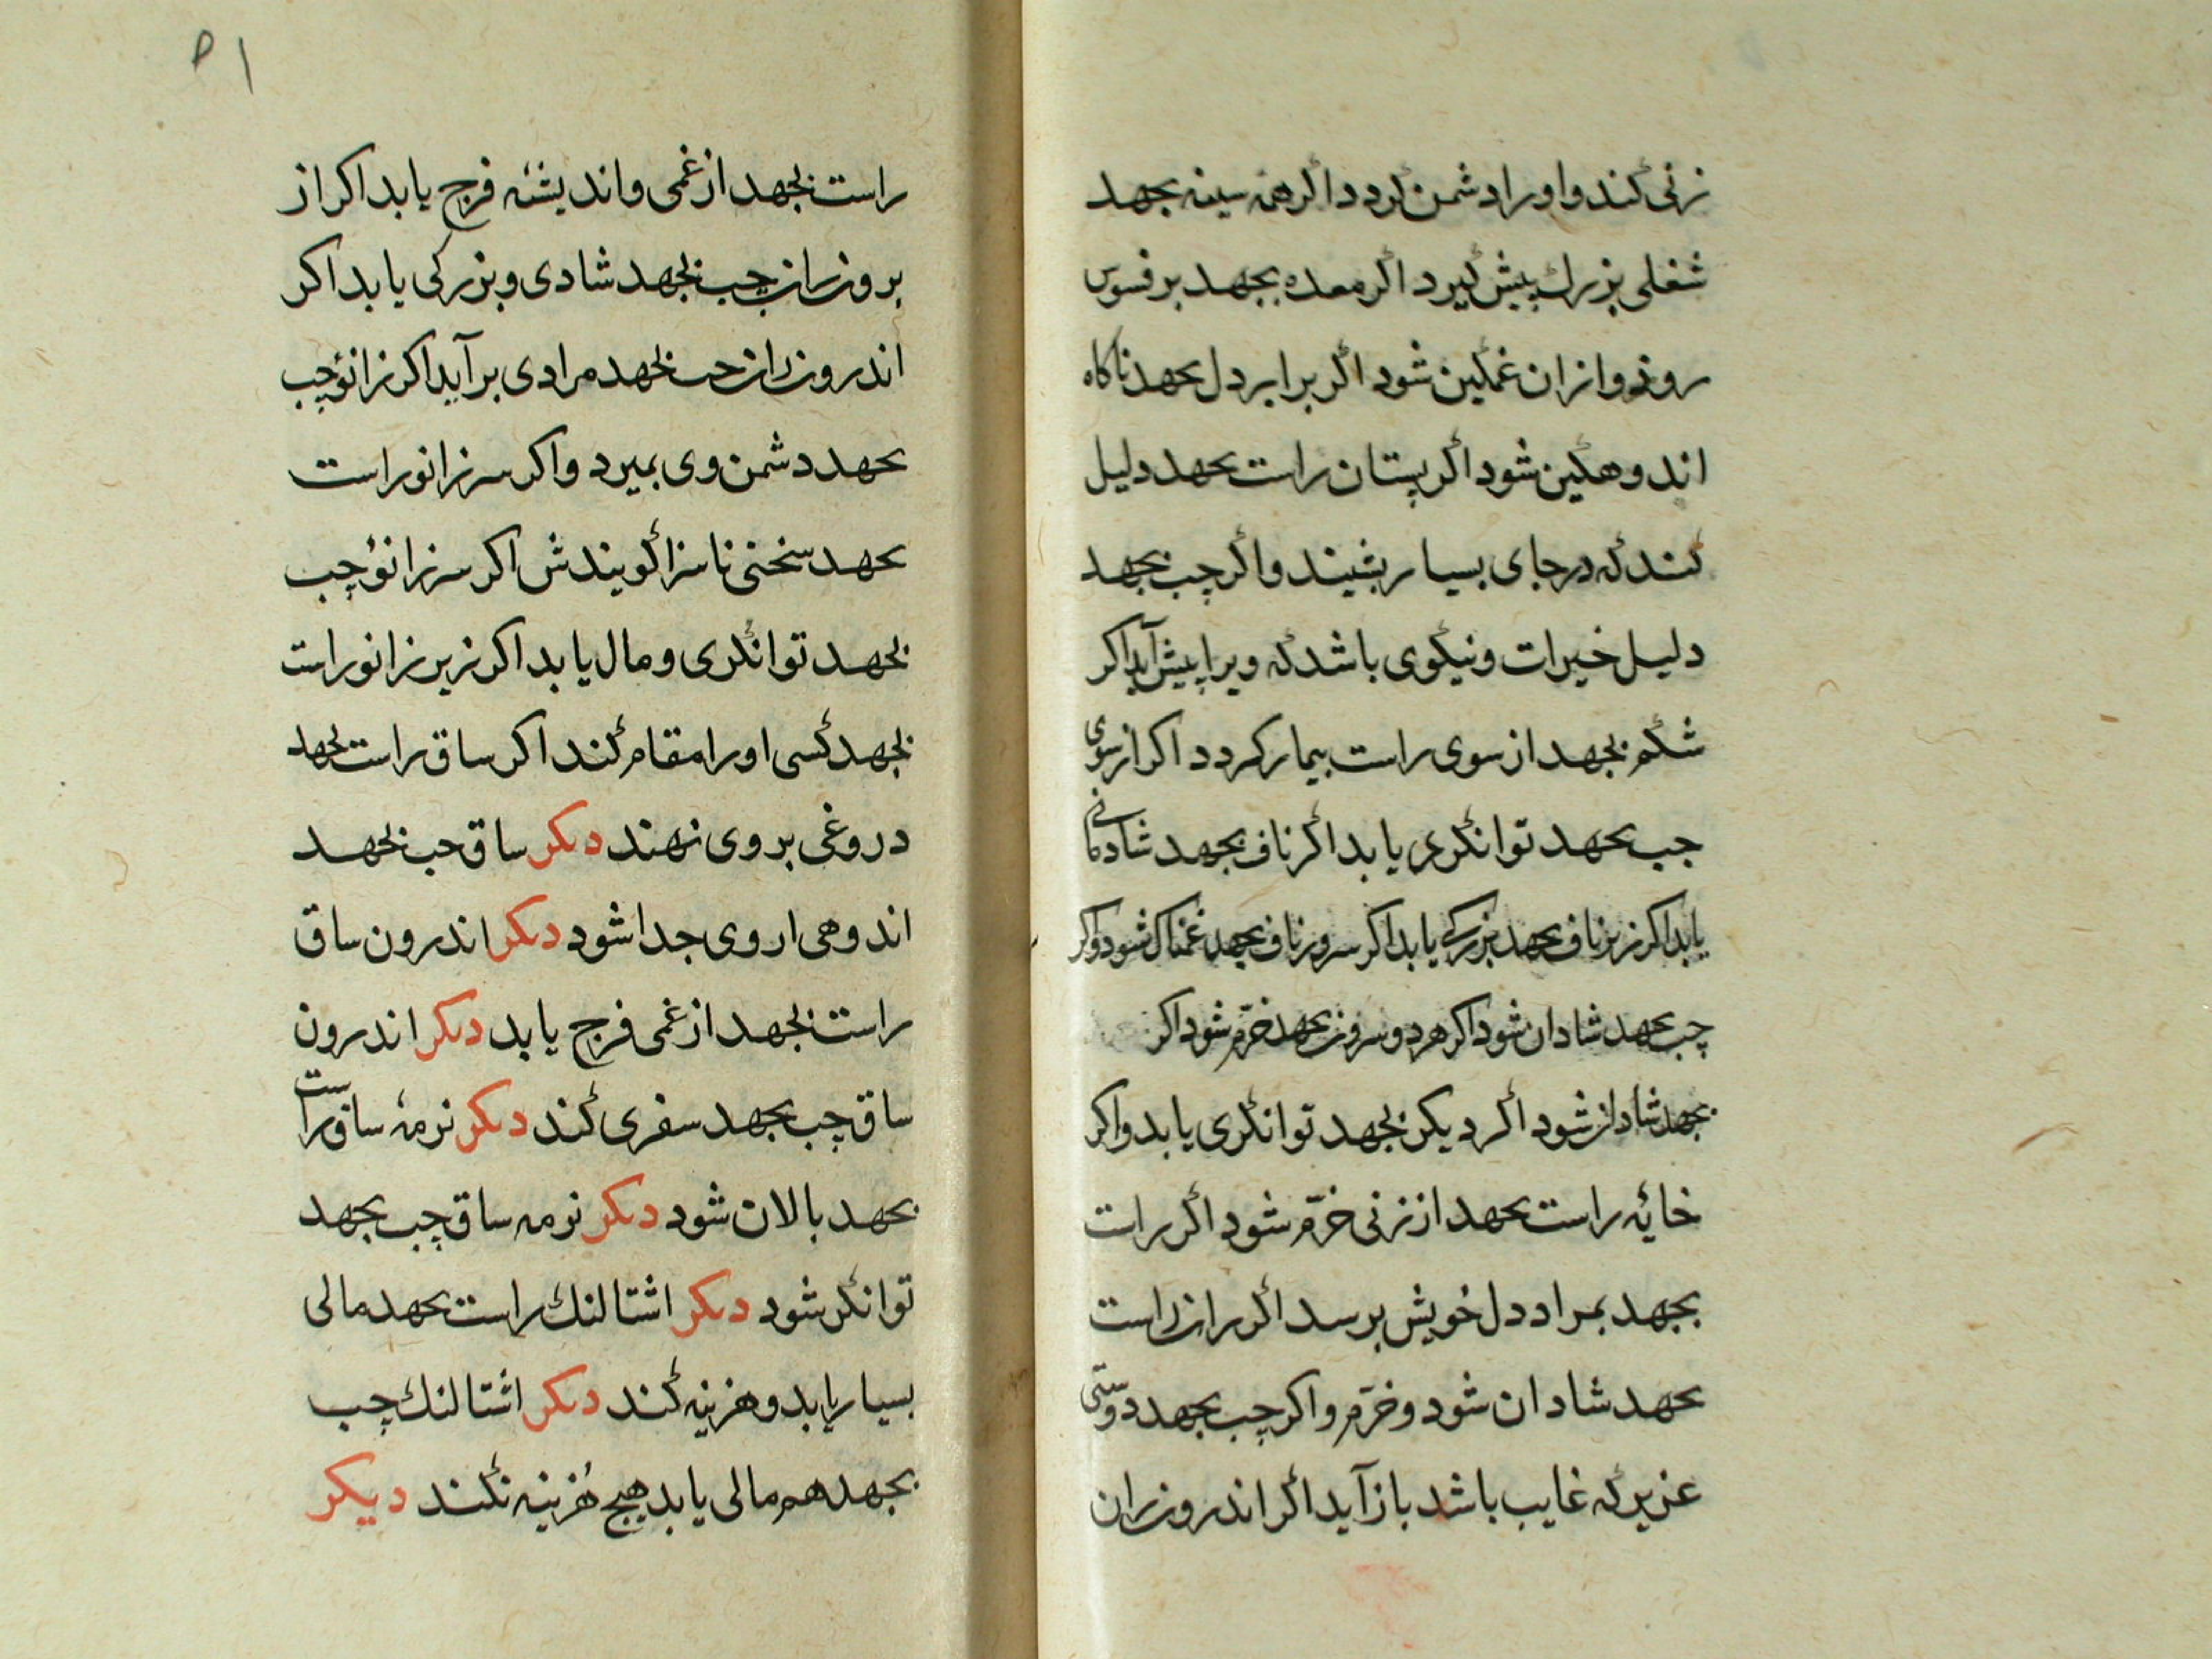 زنی کند و او را دشمن کردد اکر همه سینه بجهد
شغلی بزرك پیش کیرد اکر معده بجهد بر فسوس
روذ و ازان غمکین شود اکر برابر دل بجهد ناکاه
اندوهکین شود اکر پستان راست بجهد دلیل
کند که در جای بسیار بشیند و اکر چپ بجهد
دلیل خیرات و نیکوی باشد که ویرا پیش آید اکر
شکم بجهد از سوی راست بیمار کردد اکر از سوی
چپ بجهد توانکری یابد اکر ناف بجهد شادمانی
یابد اکر زیر ناف بجهد بزرکی یابد اکر سرون ناف بجهد غمناك شود و اکر
چپ بجهد شادان شود اکر هر دو سرون بجهد خرّم شود اکر
بجهد شادان شود اکر دیکر بجهد توانکری یابد و اکر
خایه راست بجهد از زنی خرّم شود اکر راست
بجهد بمراد دل خویش برسد اکر ران راست
بجهد شادان شود و خرّم و اکر چپ بجهد دوستی
عزیز که غایب باشد باز آید اکر اندرون ران
۵۱
راست بجهد از غمی و اندیشه فرج یابد اکر از
برون ران چپ بجهد شادی و بزرکی یابد اکر
اندرون ران چپ بجهد مرادی بر آید اکر زانو چپ
بجهد دشمن وی بمیرد و اکر سر زانو راست
بجهد سخنی ناسزا کویندش اکر سر زانو چپ
بجهد توانکری و مال یابد اکر زیر زانو راست
بجهد کسی او را مقام کند اکر ساق راست بجهد
دروغی بر وی نهند دیکر ساق چپ بجهد
اندوهی از وی جدا شود دیکر اندرون ساق
راست بجهد از غمی فرج یابد دیکر اندرون
ساق چپ بجهد سفری کند دیکر نرمه ساق راست
بجهد بالان شود دیکر نرمه ساق چپ بجهد
توانکر شود دیکر اشتالنك راست بجهد مالی
بسیار یابد و هزینه کند دیکر اشتالنك چپ
بجهد هم مالی یابد هیچ هزینه نکند دیکر